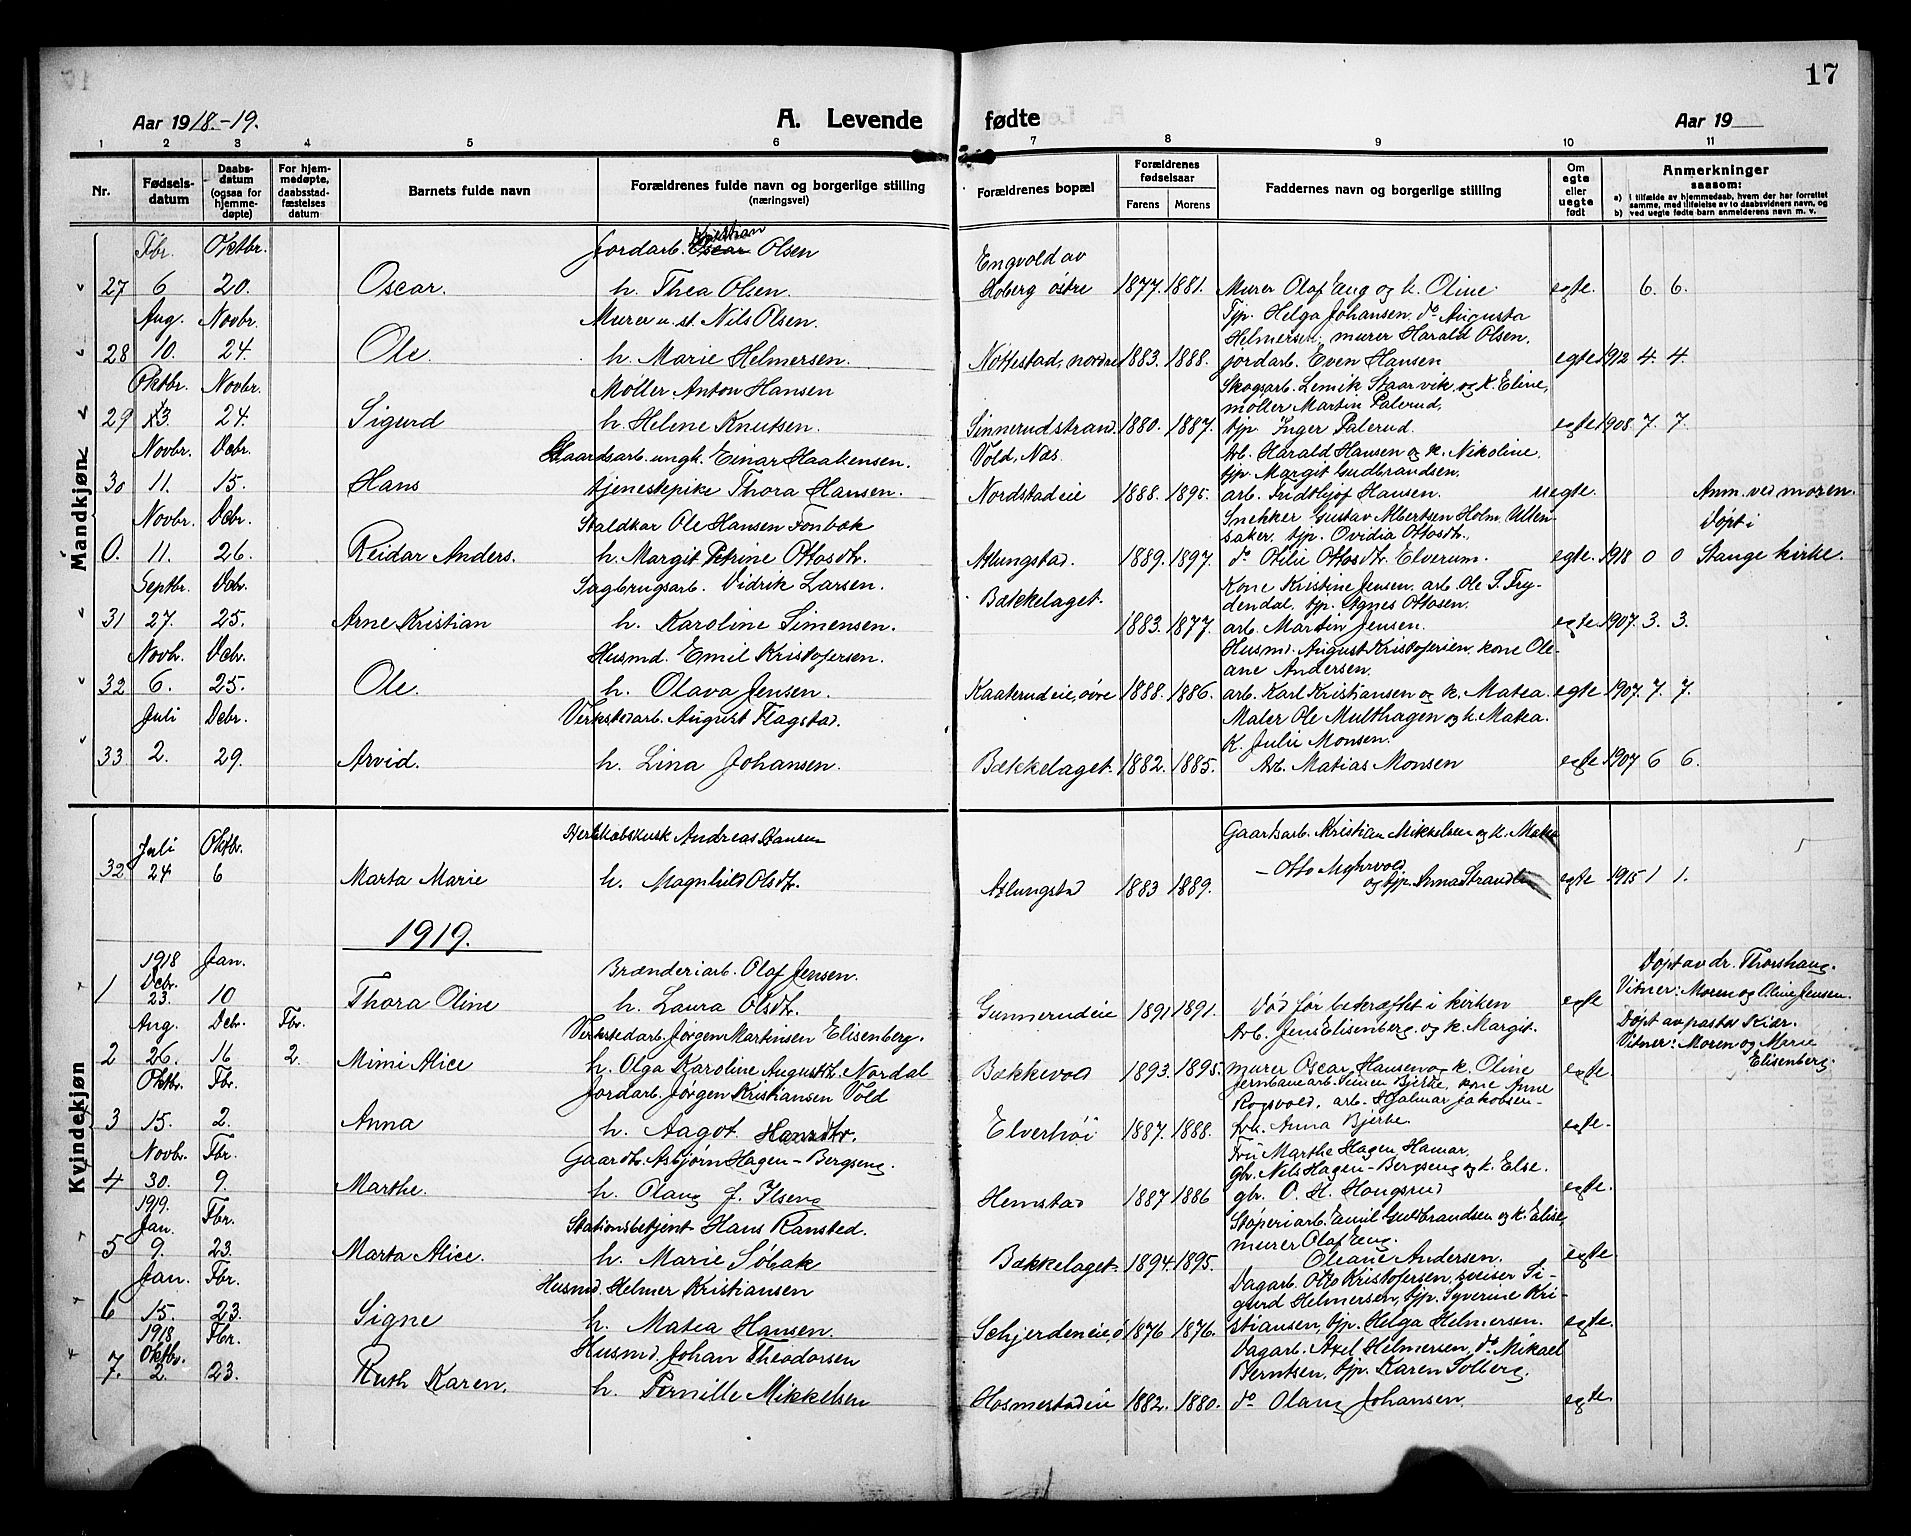 17
Aar 1918.-19.
A. Levende fødte
Aar 19
1 2 3 4 5 6 7 8 9 10 11
Nr.
Fødsels-datum
Daabs-datum (ogsaa for hjemme-døpte)
For hjem-medøpte, daabsstad-fæstelses datum
Barnets fulde navn
Forældrenes fulde navn og borgerlige stilling (næringsvei)
Forældrenes bopæl
Forældrenes fødselsaar
Farens Morens
Faddernes navn og borgerlige stilling
Om egte eller uegte født
Anmerkninger saasom:
a) I tilfælde av hjemmedaab, hvem der har forrettet samme, med tilføielse av to daabsvidners navn, og
b) ved uegte fødte barn anmelderens navn m. v.
Mandkjøn
Fbr. Oktbr. Jordarb. Kristian Olsen Engvold av
27 6 20. Oscar. h. Thea Olsen. Hoberg østre 1877. 1881. Murer Olaf Eng og k. Oline. egte. 6. 6.
Tjp. Helga Johansen, do Augusta
Aug. Novbr. Murer u. st. Nils Olsen. Helmersen, murer Harald Olsen,
28 10. 24. Ole. h. Marie Helmersen. Nøttestad, nordre 1883. 1888. jordarb. Even Hansen egte 1912 4. 4.
Oktbr. Novbr. Møller Anton Hansen Skogsarb. Lemik Staarvik og k. Eline,
møller Martin Palerud,
29 13. 24. Sigurd h. Helene Knutsen. Sinnerudstrand 1880. 1887. tjp. Inger Palerud. egte 1908 7. 7.
Novbr. Dcbr. Gaardsarb. ungk. Einar Haakensen. Vold, Næs. Arb. Harald Hansen og k. Nikoline,
tjp. Margit Gudbrandsen,
30 11. 15. Hans tjenestepike Thora Hansen. Nordstadeie 1888. 1895. arb. Fridthjof Hansen. uegte. Anm. ved moren.
Novbr. Dcbr. Staldkar Ole Hansen Fonbæk Snekker Gustav Albertsen Holm, Ullen-
saker, tjp. Ovidia Ottosdtr., Døpt i
0. 11. 26. Reidar Anders. h. Margit Petrine Ottosdtr. Atlungstad. 1889. 1897. do Otilie Ottosdtr. Elverum. egte. 1918 0 0 Stange kirke.
Septbr. Dcbr. Sagbrugsarb. Didrik Larsen. Bækkelaget. Kone Kristine Jensen, arb. Ole S. Fry-
dendal, tjp. Agnes Ottosen,
31 27. 25. Arne Kristian h. Karoline Simensen. 1883. 1877. arb. Martin Jensen. egte. 1907. 3. 3.
Novb. Dcbr. Husmd. Emil Kristofersen. Husmd. August Kristofersen, kone Ole-
ane Andersen.
32 6. 25. Ole. h. Olava Jensen. Kaaterudeie, øvre 1888. 1886. arb. Karl Kristiansen og k. Matea. egte 1907. 7. 7.
Juli Dcbr. Verkstedarb. August Flagstad. Maler Ole Multhagen og h. Matea.
K. Julie Monsen.
33 2. 29. Arvid. h. Lina Johansen. Bækkelaget. 1882. 1885. Arb. Matias Monsen egte 1907 6 6.
Kvindekjøn
Juli Oktbr. Herskabskusk Andreas Hansen Gaardsarb. Kristian Mikkelsen og k. Matea
32 24 6 Marta Marie h. Magnhild Olsdtr. Atlungstad 1883 1889. – Otto Myhrvold
og tjp. Anna Strandli egte 1915 1 1.
1919.
1918 Jan. Brænderiarb. Olaf Jensen. Døpt av dr. Thorshaug.
1 Dcbr. 23. 10 Thora Oline h. Laura Olsdtr. Gunnerudeie 1891 1891. Død før bekræftet i kirken egte Vitner: Moren og Oline Jensen.
Aug. Dcbr. Fbr. Verkstedarb. Jørgen Martinsen Elisenberg. Arb. Jens Elisenberg og k. Margit. Døpt av pastor Kiær.
2 26. 16 2. Mimi Alice h. Olga Karoline Augustdtr. Nordal Bækkevold 1893. 1895. murer Oscar Hansen og k. Oline egte. Vitner: Moren og Marie Elisenberg.
Oktbr. Fbr. Jordarb. Jørgen Kristiansen Vold Jernbanearb. Simen Bjerke, kone Anne
Rogsvold, arb. Hjalmar Jakobsen-
3 15. 2. Anna h. Aagot Hansdtr. Elverhøi 1887. 1888. Arb. Anna Bjerke. egte.
Novbr. Fbr. Gaardbr. Asbjørn Hagen-Bergseng. Fru Marthe Hagen, Hamar,
gbr. Nils Hagen-Bergseng og k. Else.
4 30. 9. Marthe. h. Olaug f. Ilseng Hemstad 1887 1886 gbr. O. H. Hougsrud egte.
1919. Jan. Fbr. Stationsbetjent Hans Ransted. Støperiarb. Emil Guldbrandsen og k. Elise,
murer Olaf Eng.
5 9. 23. Marta Alice. h. Marie Søbak Bækkelaget. 1894. 1895. Oleane Andersen. egte.
Jan. Fbr. Husmd. Helmer Kristiansen Dagarb. Otto Kristofersen, sveiser Si-
gurd Helmersen, tjp. Syverine Kri-
6 15. 23. Signe h. Matea Hansen. Schjerdeneie, ø 1876 1876. stiansen, tjp. Helga Helmersen. egte.
1918 Fbr. Husmd. Johan Theodorsen Dagarb. Axel Helmersen, do Mikael
Berntsen, tjp. Karen Solberg,
7. Oktbr. 2. 23. Ruth Karen. h. Pernille Mikkelsen Hosmestadeie 1882. 1880. do Olaug Johansen. egte.